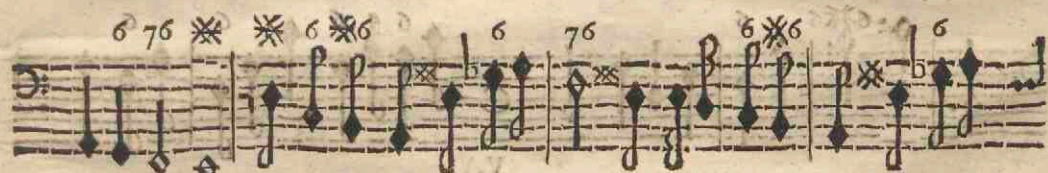 6 76 ※ ※ 6 ※6 6 76 6 ※6 6